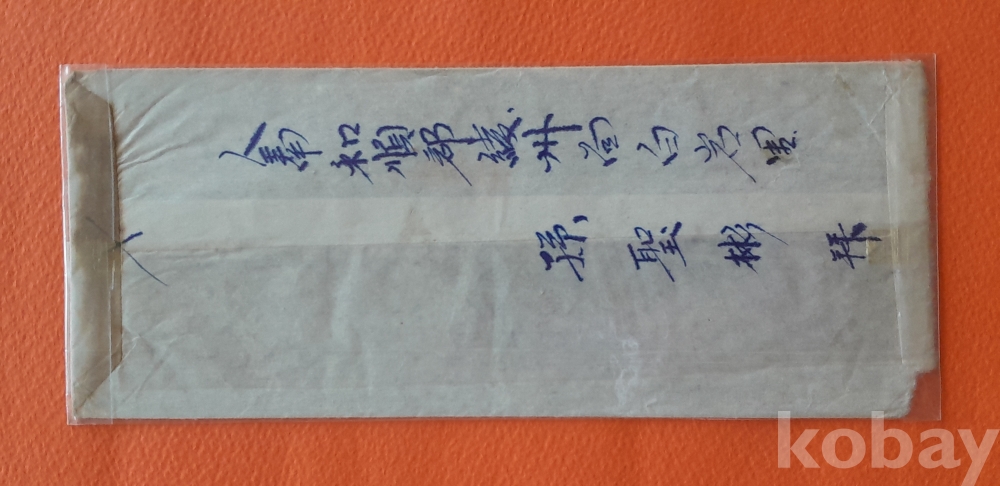 全南和順郡綾州面白岩里
孫聖彬 拜
kobay